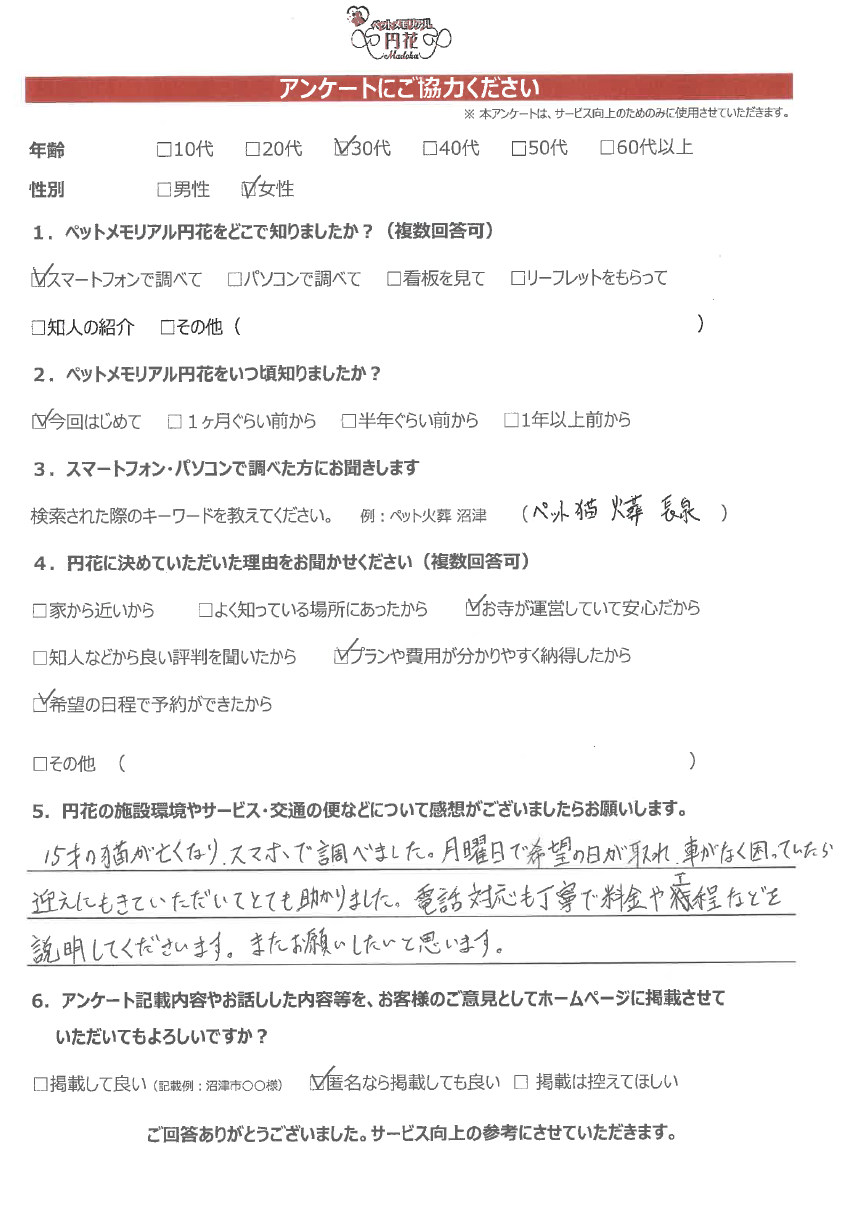 ペットメモリアル
円花
Madoka
アンケートにご協力ください
※ 本アンケートは、サービス向上のためのみに使用させていただきます。
年齢 □10代 □20代 ☑30代 □40代 □50代 □60代以上
性別 □男性 ☑女性
1．ペットメモリアル円花をどこで知りましたか？（複数回答可）
☑スマートフォンで調べて □パソコンで調べて □看板を見て □リーフレットをもらって
□知人の紹介 □その他（ ）
2．ペットメモリアル円花をいつ頃知りましたか？
☑今回はじめて □1ヶ月ぐらい前から □半年ぐらい前から □1年以上前から
3．スマートフォン・パソコンで調べた方にお聞きします
検索された際のキーワードを教えてください。 例：ペット火葬 沼津 （ペット猫 火葬 長泉 ）
4．円花に決めていただいた理由をお聞かせください（複数回答可）
□家から近いから □よく知っている場所にあったから ☑お寺が運営していて安心だから
□知人などから良い評判を聞いたから ☑プランや費用が分かりやすく納得したから
☑希望の日程で予約ができたから
□その他 （ ）
5．円花の施設環境やサービス・交通の便などについて感想がございましたらお願いします。
15才の猫が亡くなり、スマホで調べました。月曜日で希望の日が取れ、車がなく困っていたら
迎えにもきていただいてとても助かりました。電話対応も丁寧で料金や工程などを
説明してくださいます。またお願いしたいと思います。
6．アンケート記載内容やお話しした内容等を、お客様のご意見としてホームページに掲載させて
いただいてもよろしいですか？
□掲載して良い（記載例：沼津市〇〇様） ☑匿名なら掲載しても良い □ 掲載は控えてほしい
ご回答ありがとうございました。サービス向上の参考にさせていただきます。